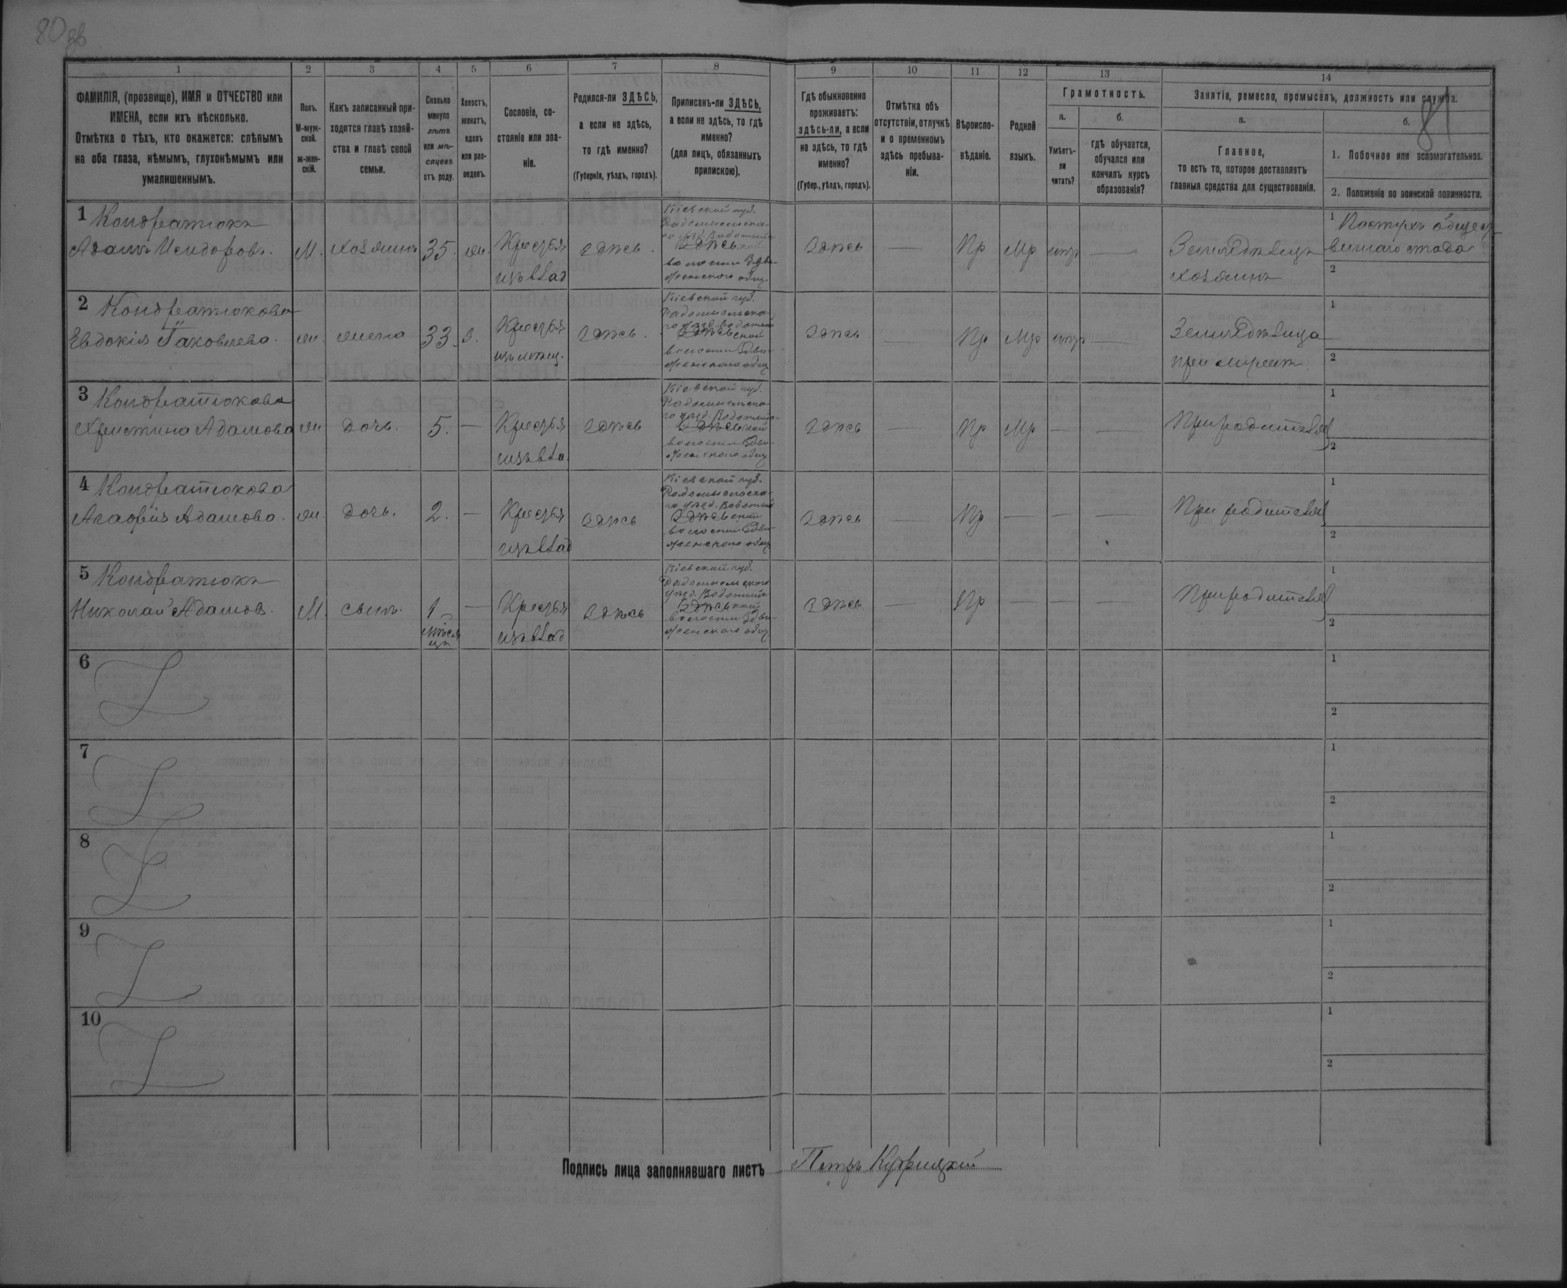 80 об
81
1 2 3 4 5 6 7 8 9 10 11 12 13 14
ФАМИЛІЯ, (прозвище), ИМЯ и ОТЧЕСТВО или
ИМЕНА, если ихъ нѣсколько.
Отмѣтка о тѣхъ, кто окажется: слѣпымъ
на оба глаза, нѣмымъ, глухонѣмымъ или
умалишеннымъ.
Полъ.
М-муж-
ской.
ж-жен-
скій.
Какъ записанный при-
ходится главѣ хозяй-
ства и главѣ своей
семьи.
Сколько
минуло
лѣтъ
или мѣ-
сяцевъ
отъ роду.
Холостъ,
женатъ,
вдовъ
или раз-
веденъ.
Сословіе, со-
стояніе или зва-
ніе.
Родился-ли ЗДѢСЬ,
а если не здѣсь,
то гдѣ именно?
(Губернія, уѣздъ, городъ).
Приписанъ-ли ЗДѢСЬ,
а если не здѣсь, то гдѣ
именно?
(для лицъ, обязанныхъ
припискою).
Гдѣ обыкновенно
проживаетъ:
здѣсь-ли, а если
не здѣсь, то гдѣ
именно?
(Губер., уѣздъ, городъ).
Отмѣтка объ
отсутствіи, отлучкѣ
и о временномъ
здѣсь пребыва-
ніи.
Вѣроиспо-
вѣданіе.
Родной
языкъ.
Грамотность.
а.
Умѣетъ-
ли
читать?
б.
гдѣ обучается,
обучался или
кончилъ курсъ
образованія?
Занятіе, ремесло, промыселъ, должность или служба.
а.
Главное,
то есть то, которое доставляетъ
главныя средства для существованія.
б.
1. Побочное или вспомогательное.
2. Положеніе по воинской повинности.
1 Кондратюкъ
Адамъ Исидоровъ.
М. хозяинъ 35. ж.
Крестья
изъ влад
здѣсь.
Кіевской губ.
Здѣсь
волости
здѣсь — Пр Мр нѣтъ —
Земледѣлецъ
хозяинъ
1 Пастухъ общест
веннаго стада
2
2 Кондратюкова
Евдокія Яковлева.
ж. жена 33. з.
Крестья
здѣсь.
Кіевской губ.
Здѣсь
волости
здѣсь — Пр Мр нѣтъ —
Земледѣлица
при мужѣ
1
2
3 Кондратюкова
Христина Адамова
ж дочь. 5. —
Крестья
изъ вла
здѣсь
Кіевской губ.
Здѣсь
волости
здѣсь — Пр Мр — —
При родителяхъ
1
2
4 Кондратюкова
Агафія Адамова.
ж. дочь. 2. —
Крестья
изъ влад
здѣсь
Кіевской губ.
Здѣсь
волости
здѣсь — Пр — — —
При родителяхъ
1
2
5 Кондратюкъ
Николай Адамовъ.
М. сынъ. 1 —
мѣся
цъ
Крестья
изъ влад
здѣсь
Кіевской губ.
Здѣсь
волости
здѣсь — Пр — — —
При родителяхъ
1
2
6
1
2
7
1
2
8
1
2
9
1
2
10
1
2
Подпись лица заполнявшаго листъ Петръ